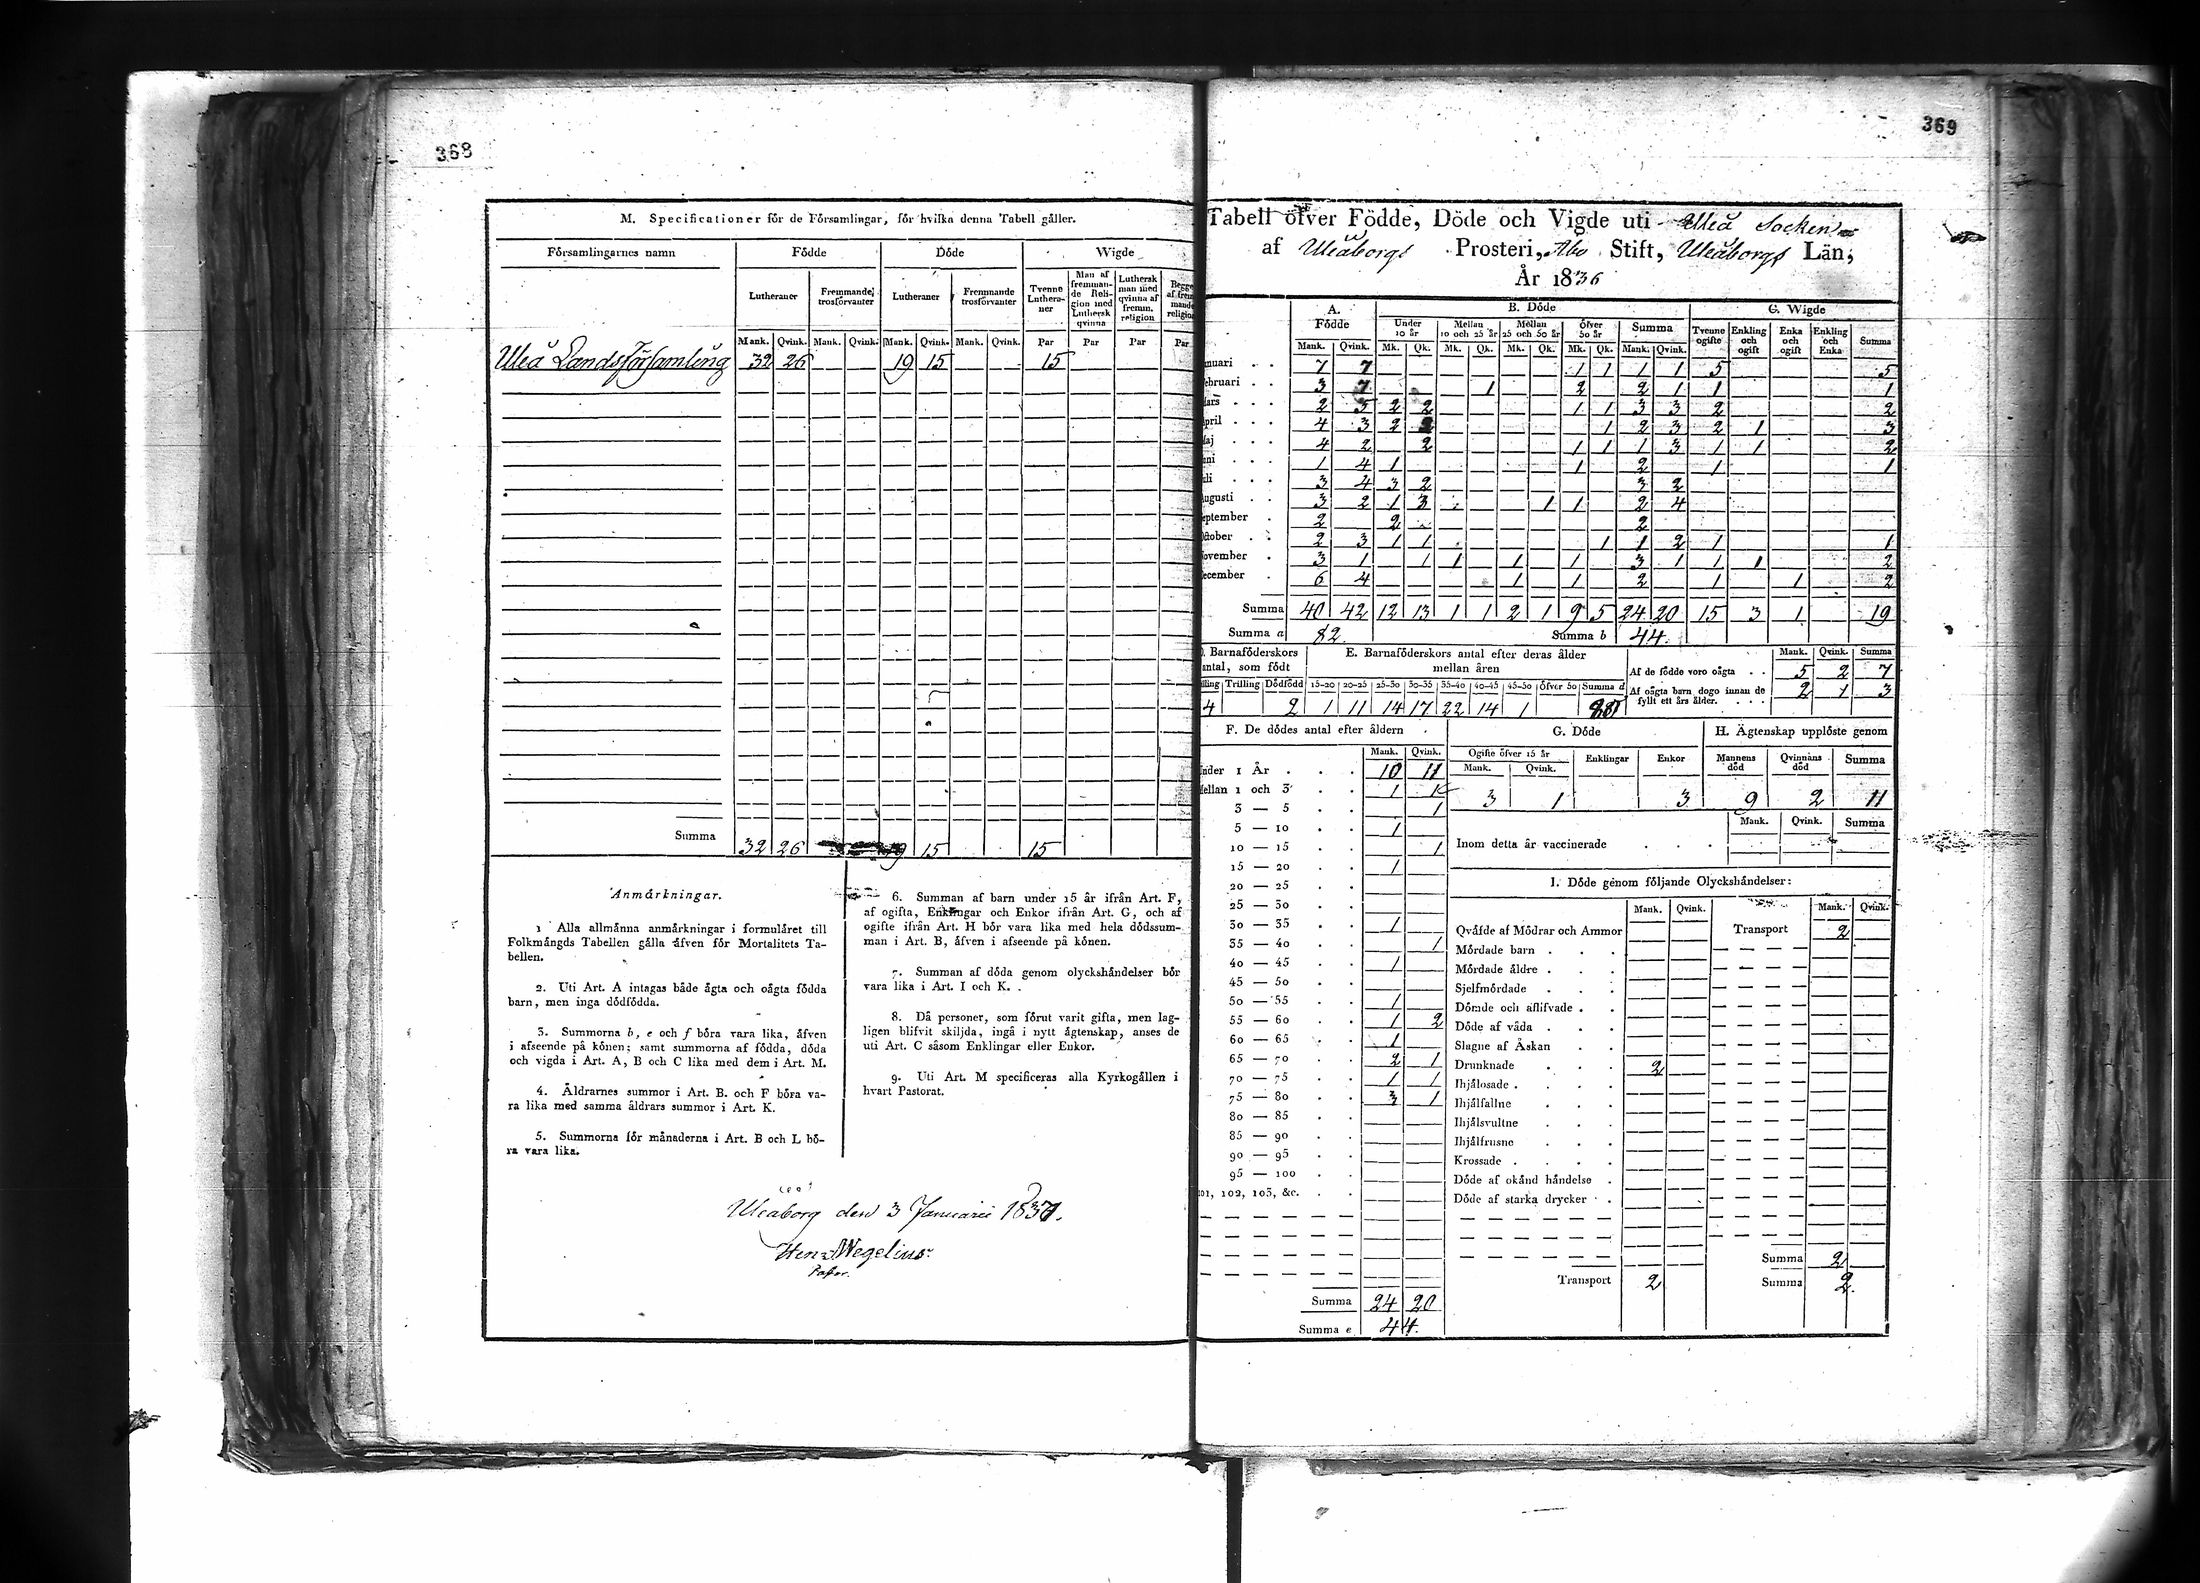 368
M. Specificationer för de Församlingar, för hvilka denna Tabell gäller.
Församlingarnes namn Födde Döde Wigde
Lutheraner Fremmande trosförvanter Lutheraner Fremmande trosförvanter Tvenne Lutheraner Man af fremmande Religion med Luthersk qvinna Luthersk man med qvinna af fremm. religion Begge af frem mande religion
Mank. Qvink. Mank. Qvink. Mank. Qvink. Mank. Qvink. Par Par Par Par
Uleå Landsförsamling 32 26 19 15 15
Summa 32 26 19 15 15
Anmärkningar.
1 Alla allmänna anmärkningar i formuläret till
Folkmängds Tabellen gälla äfven för Mortalitets Ta-
bellen.
2. Uti Art. A intagas både ägta och oägta födda
barn, men inga dödfödda.
3. Summorna b, e och f böra vara lika, äfven
i afseende på könen; samt summorna af födda, döda
och vigda i Art. A, B och C lika med dem i Art. M.
4. Äldrarnes summor i Art. B. och F böra va-
ra lika med samma äldrars summor i Art. K.
5. Summorna för månaderna i Art. B och L bö-
ra vara lika.
6. Summan af barn under 15 år ifrån Art. F,
af ogifta, Enklingar och Enkor ifrån Art. G, och af
ogifte ifrån Art. H bör vara lika med hela dödssum-
man i Art. B, äfven i afseende på könen.
7. Summan af döda genom olyckshändelser bör
vara lika i Art. I och K.
8. Då personer, som förut varit gifta, men lag-
ligen blifvit skiljda, ingå i nytt ägtenskap, anses de
uti Art. C såsom Enklingar eller Enkor.
9. Uti Art. M specificeras alla Kyrkogällen i
hvart Pastorat.
Uleåborg den 3 Januarii 1837.
Wegelius
369
Tabell öfver Födde, Döde och Vigde uti Uleå Socken
af Uleåborgs Prosteri, Åbo Stift, Uleåborgs Län,
År 1836
A. Födde B. Döde G. Wigde
Under 10 år Mellan 10 och 25 år Mellan 25 och 50 år Öfver 50 år Summa Tvenne ogifte Enkling och ogift Enka och ogift Enkling och Enka Summa
Mank. Qvink. Mk. Qk. Mk. Qk. Mk. Qk. Mk. Qk. Mank. Qvink.
nuari 7 7 1 1 1 1 5 5
ebruari 3 7 1 2 2 1 1 1
Mars 2 5 2 2 1 1 3 3 2 2
April 4 3 2 2 1 2 3 2 1 3
Maj 4 2 2 1 1 1 3 1 1 2
uni 1 4 1 1 2 1 1
uli 3 4 3 2 3 2
Augusti 3 2 1 3 1 1 2 4
eptember 2 2 2
Oktober 2 3 1 1 1 1 2 1 1
November 3 1 1 1 1 1 3 1 1 1 2
ecember 6 4 1 1 2 1 1 2
Summa 40 42 12 13 1 1 2 1 9 5 24 20 15 3 1 19
Summa a 82. Summa b 44.
D. Barnaföderskors antal, som födt
E. Barnaföderskors antal efter deras ålder mellan åren
Mank. Qvink. Summa
Af de födde voro oägta 5 2 7
Af oägta barn dogo innan de fyllt ett års ålder. 2 1 3
illing Trilling Dödfödd 15-20 20-25 25-30 30-35 35-40 40-45 45-50 Öfver 50 Summa d
4 2 1 11 14 17 22 14 1
F. De dödes antal efter åldern
Mank. Qvink.
nder 1 År 10 11
Mellan 1 och 3 1 1
3 — 5 1
5 — 10 1
10 — 15 1
15 — 20 1
20 — 25
25 — 30
30 — 35 1
35 — 40 1
40 — 45 1
45 — 50
50 — 55 1
55 — 60 1 2
60 — 65 1
65 — 70 2 1
70 — 75 1 1
75 — 80 3 1
80 — 85
85 — 90
90 — 95
95 — 100
101, 102, 103, &c.
Summa 24 20
Summa e 44.
G. Döde H. Ägtenskap upplöste genom
Ogifte öfver 15 år Enklingar Enkor Mannens död Qvinnans död Summa
Mank. Qvink.
3 1 3 9 2 11
Mank. Qvink. Summa
Inom detta år vaccinerade
I. Döde genom följande Olyckshändelser:
Mank. Qvink. Mank. Qvink.
Qväfde af Mödrar och Ammor Transport 2
Mördade barn
Mördade äldre
Sjelfmördade
Dömde och aflifvade
Döde af våda
Slagne af Åskan
Drunknade 2
Ihjälosade
Ihjälfallne
Ihjälsvultne
Ihjälfrusne
Krossade
Döde af okänd händelse
Döde af starka drycker
Summa 2
Transport 2 Summa 2.